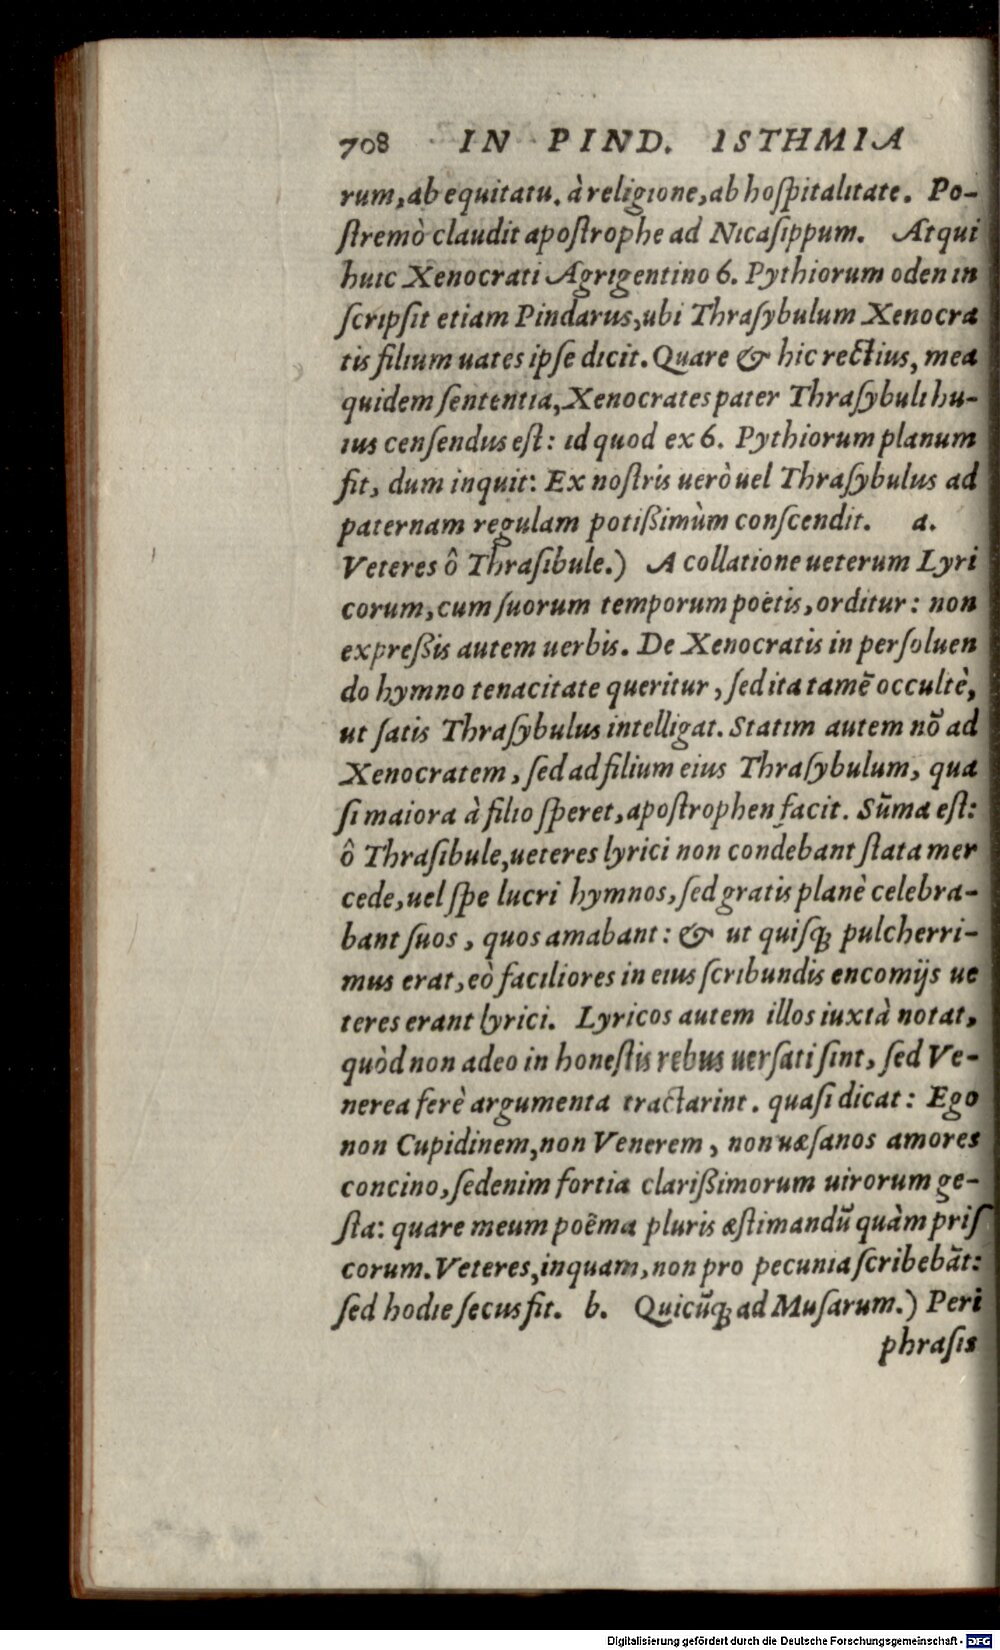 708 IN PIND. ISTHMIA
rum, ab equitatu, à religione, ab hoſpitalitate. Po-
ſtremò claudit apoſtrophe ad Nicaſippum. Atqui
huic Xenocrati Agrigentino 6. Pythiorum oden in
ſcripſit etiam Pindarus, ubi Thraſybulum Xenocra
tis filium uates ipſe dicit. Quare & hic rectius, mea
quidem ſententia, Xenocrates pater Thraſybuli hu-
ius cenſendus eſt: id quod ex 6. Pythiorum planum
fit, dum inquit: Ex noſtris uerò uel Thraſybulus ad
paternam regulam potißimùm conſcendit. a.
Veteres ô Thraſibule.) A collatione ueterum Lyri
corum, cum ſuorum temporum poëtis, orditur: non
expreßis autem uerbis. De Xenocratis in perſoluen
do hymno tenacitate queritur, ſed ita tamẽ occultè,
ut ſatis Thraſybulus intelligat. Statim autem nõ ad
Xenocratem, ſed ad filium eius Thraſybulum, qua
ſi maiora à filio ſperet, apoſtrophen facit. Sũma eſt:
ô Thraſibule, ueteres lyrici non condebant ſtata mer
cede, uel ſpe lucri hymnos, ſed gratis planè celebra-
bant ſuos, quos amabant: & ut quiſq; pulcherri-
mus erat, eò faciliores in eius ſcribundis encomijs ue
teres erant lyrici. Lyricos autem illos iuxtà notat,
quòd non adeo in honeſtis rebus uerſati ſint, ſed Ve-
nerea ferè argumenta tractarint. quaſi dicat: Ego
non Cupidinem, non Venerem, non uæſanos amores
concino, ſedenim fortia clarißimorum uirorum ge-
ſta: quare meum poëma pluris æſtimandũ quàm priſ
corum. Veteres, inquam, non pro pecunia ſcribebãt:
ſed hodie ſecus fit. b. Quicũq; ad Muſarum.) Peri
phraſis
Digitalisierung gefördert durch die Deutsche Forschungsgemeinschaft - DFG